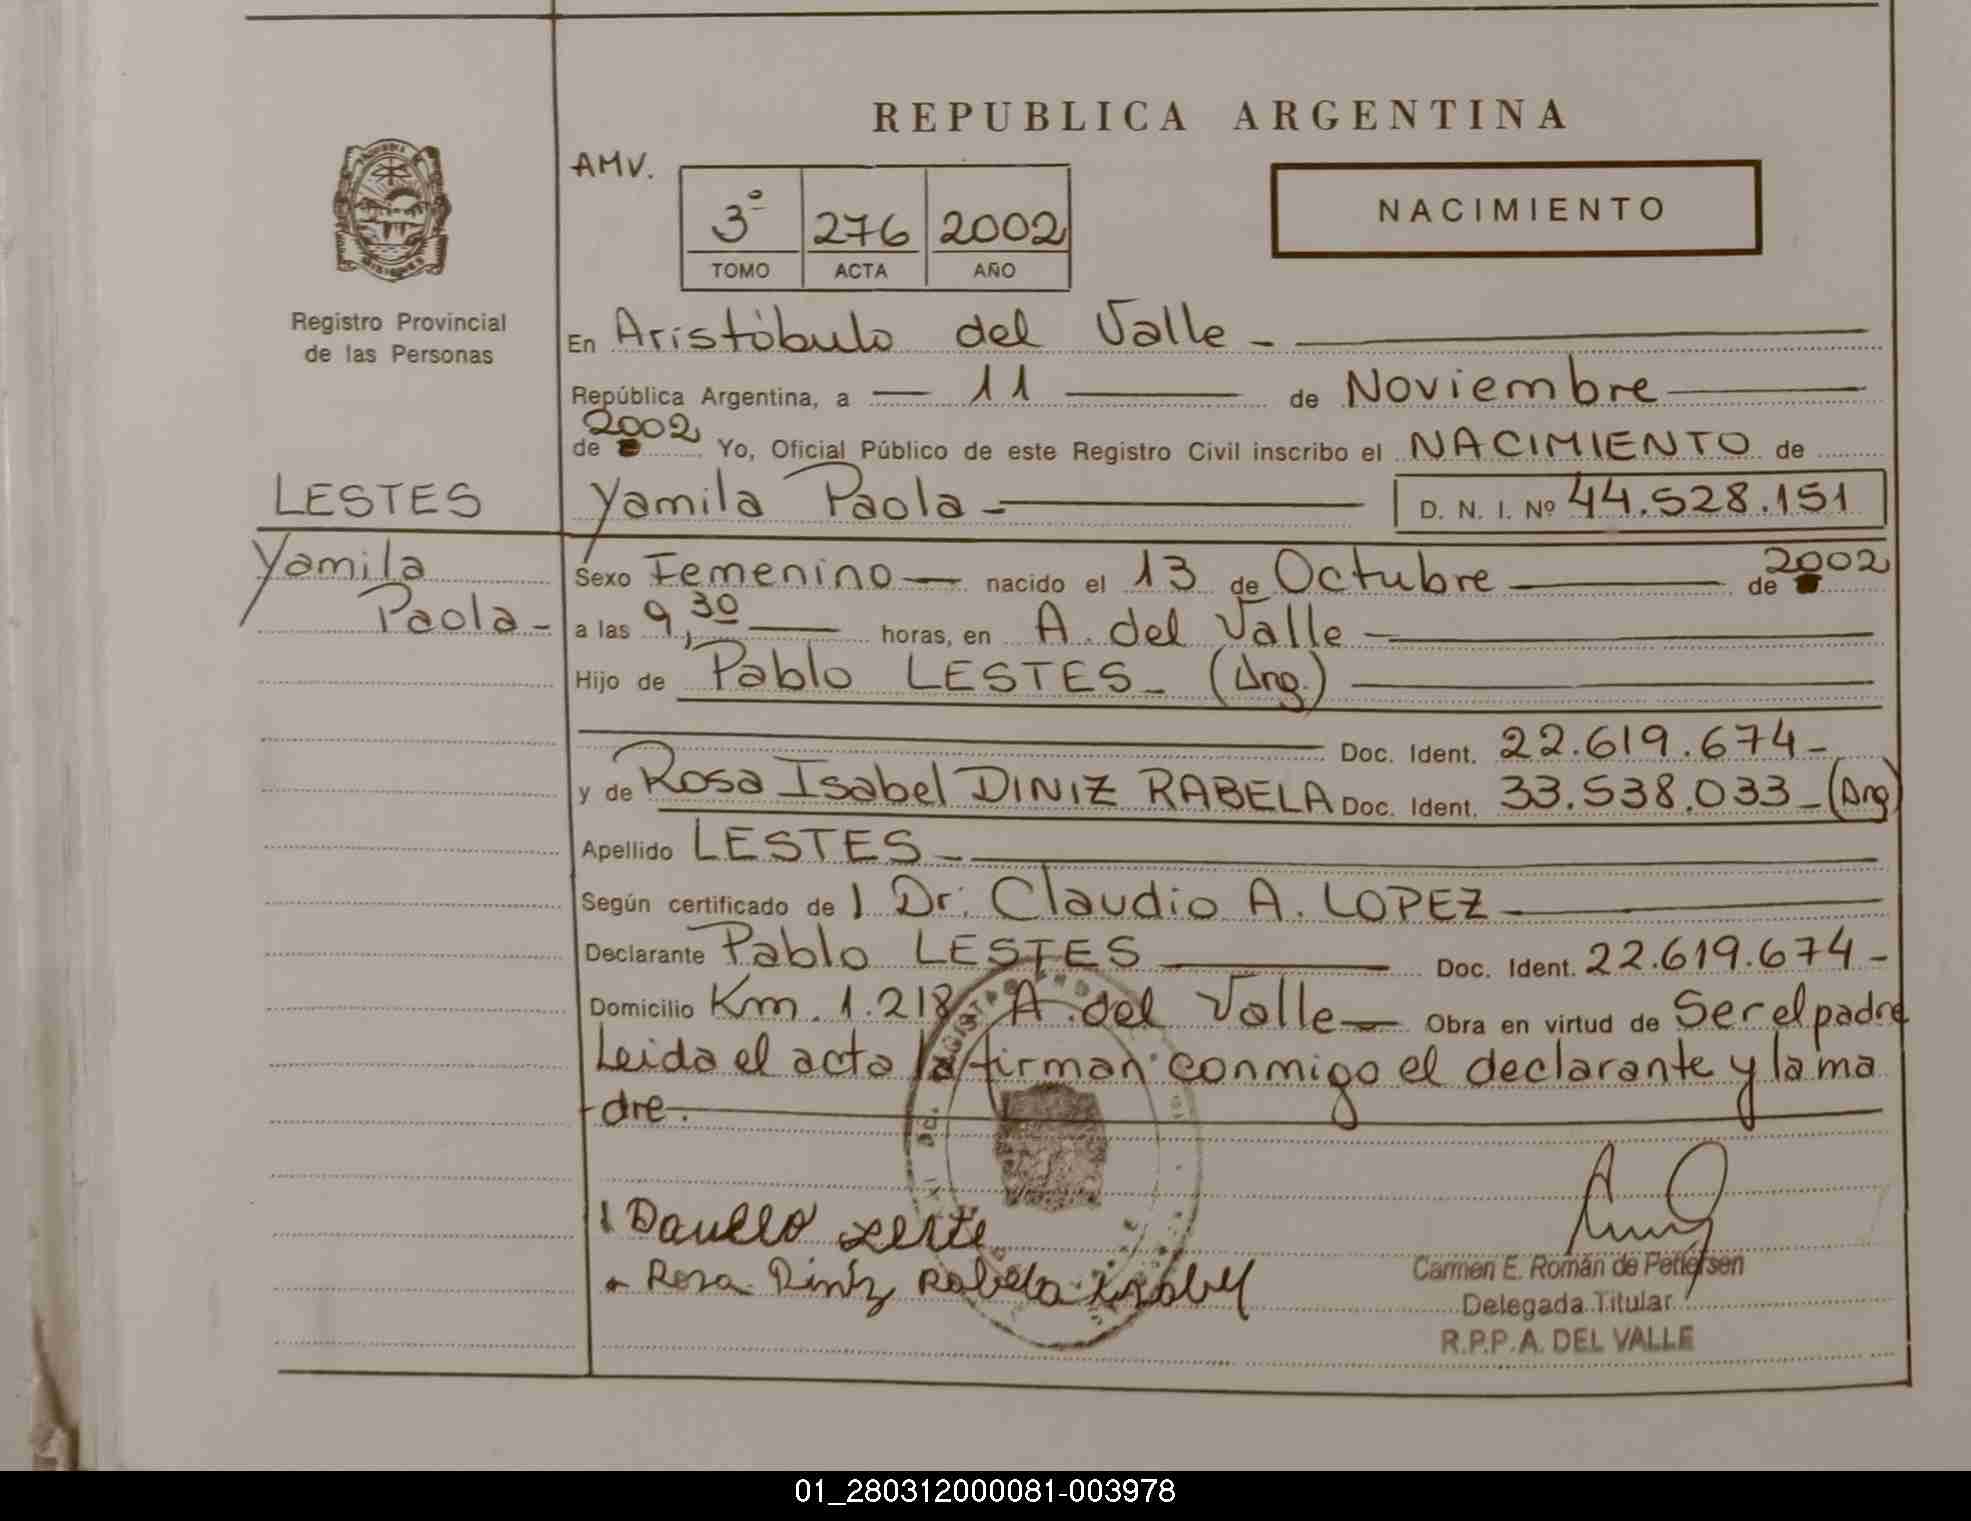 REPUBLICA ARGENTINA
AMV.
3º 276 2002
TOMO ACTA AÑO
NACIMIENTO
Registro Provincial
de las Personas
En Aristóbulo del Valle -
República Argentina, a — 11 — de Noviembre
de 2002 Yo, Oficial Público de este Registro Civil inscribo el NACIMIENTO de
LESTES
Yamila Paola - D. N. I. Nº 44.528.151
Yamila
Paola -
Sexo Femenino — nacido el 13 de Octubre — de 2002
a las 9,30 — horas, en A. del Valle -
Hijo de Pablo LESTES - (Arg.)
Doc. Ident. 22.619.674 -
y de Rosa Isabel DINIZ RABELA Doc. Ident. 33.538.033 - (Arg)
Apellido LESTES -
Según certificado de 1 Dr. Claudio A. LOPEZ
Declarante Pablo LESTES — Doc. Ident. 22.619.674 -
Domicilio Km. 1.218 A. del Valle — Obra en virtud de Ser el padre
Leida el acta la firman conmigo el declarante y la ma
dre.
Rosa Diniz Rabela Isabel
Carmen E. Román de Pettersen
Delegada Titular
R.P.P. A. DEL VALLE
01_280312000081-003978